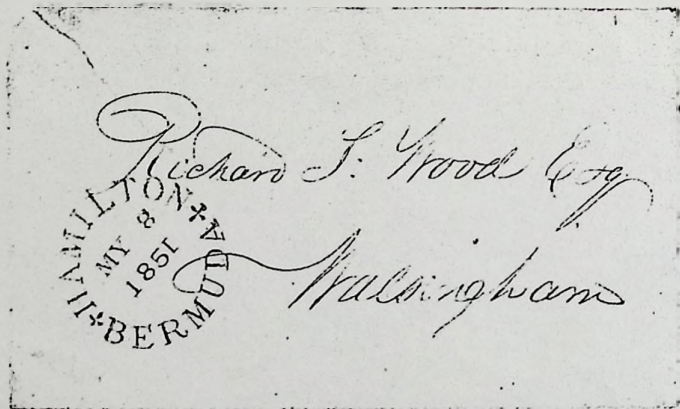 Richard S. Wood Esq
Walsingham
HAMILTON
BERMUDA
MY 8
1851